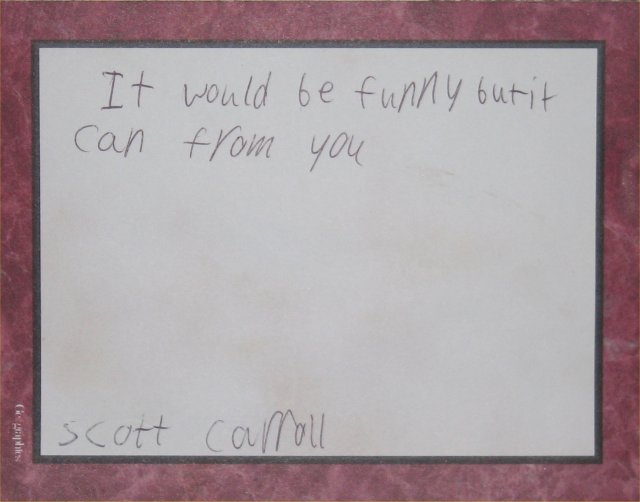 It would be funny but it
can from you
scott carroll
Geographics